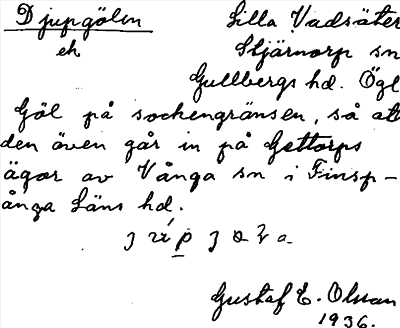 Djupgölen Lilla Vadsäter
ek Stjärnorp sn
Gullbergs hd. Ögl
Göl på sockengränsen, så att
den även går in på Gettorps
ägor av Vånga sn i Finsp-
ånga Läns hd.
Gustaf E. Olsson
1936.